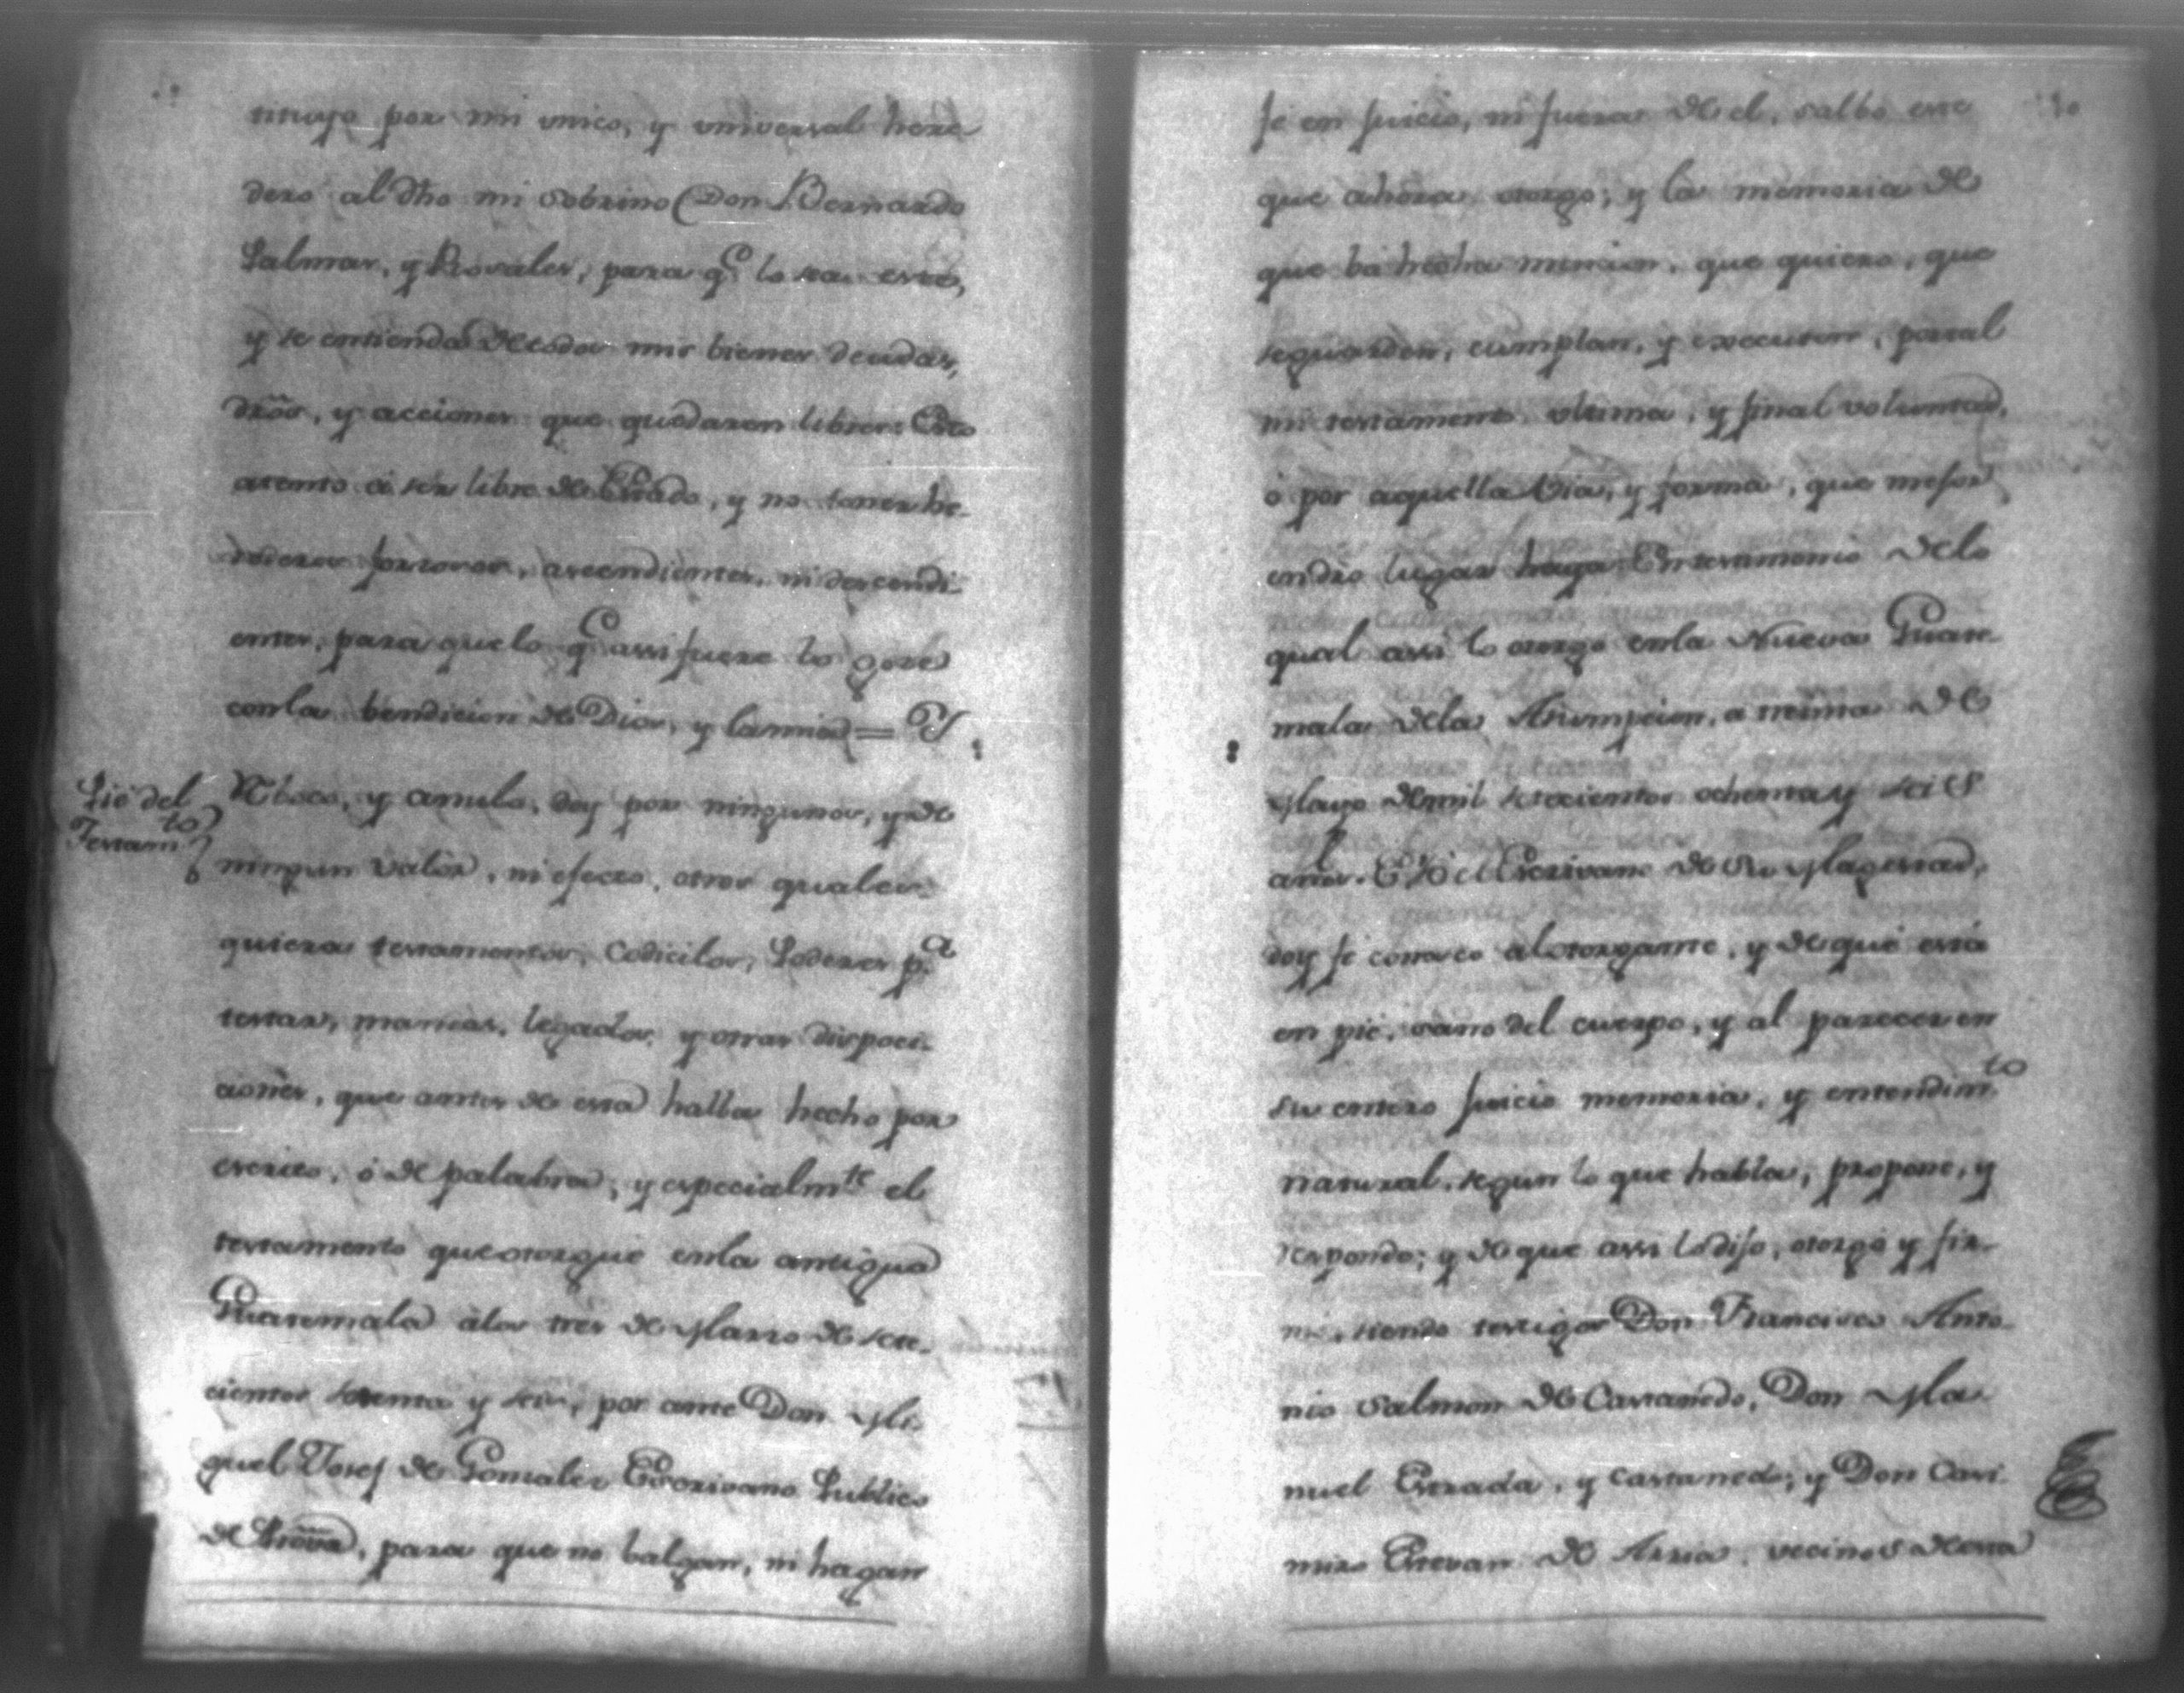 tituyo por mi unico, y universal here
dero al dho mi sobrino Don Bernardo
Palmar, y Rosales, para q.e lo sea este,
y se entienda de todos mis bienes deudas,
dros, y acciones que quedaren libres: Esto
atento á ser libre de Estado, y no tener he-
rederos forzosos, ascendientes, ni descendi-
entes, para que lo q.e assi fuere lo goze
con la bendicion de Dios, y la mia = Y
Pie del
Testam.to
Reboco, y anulo, doy por ningunos, y de
ningun valor, ni efecto, otros quales-
quiera testamentos, Codicilos, Poderes p.a
testar, mandas, legados, y otras dispoci-
ciones, que antes de esta halla hecho por
escrito, ó de palabra, y especialm.te el
testamento que otorgué en la antigua
Guatemala á los tres de Marzo de sete-
cientos setenta y seis, por ante Don Mi-
guel Josef de Gonzalez Escrivano Publico
de Prova, para que no balgan, ni hagan
fe en juicio, ni fuera de el, salbo este
que ahora otorgo; y la memoria de
que bá hecha mencion, que quiero, que
se guarden, cumplan, y executen, por tal
mi testamento ultima, y final voluntad,
ó por aquella via, y forma, que mejor
en dro lugar haya. En testimonio de lo
qual assi lo otorgo en la Nueva Guate-
mala de la Assumpcion, a treinta de
Mayo de mil setecientos ochenta y seis
años. E Yo el Escrivano de Su Magestad,
doy fe conosco al otorgante, y de que está
en pie, sano del cuerpo, y al parecer en
su entero juicio memoria, y entendim.to
natural, segun lo que habla, propone, y
responde; y de que assi lo dijo, otorgó y fir-
mó, siendo testigos Don Francisco Anto-
nio Salmon de Castanedo, Don Ma-
nuel Estrada, y Castanedo; y Don Casi-
miro Estevan de Arzia, vecinos de esta